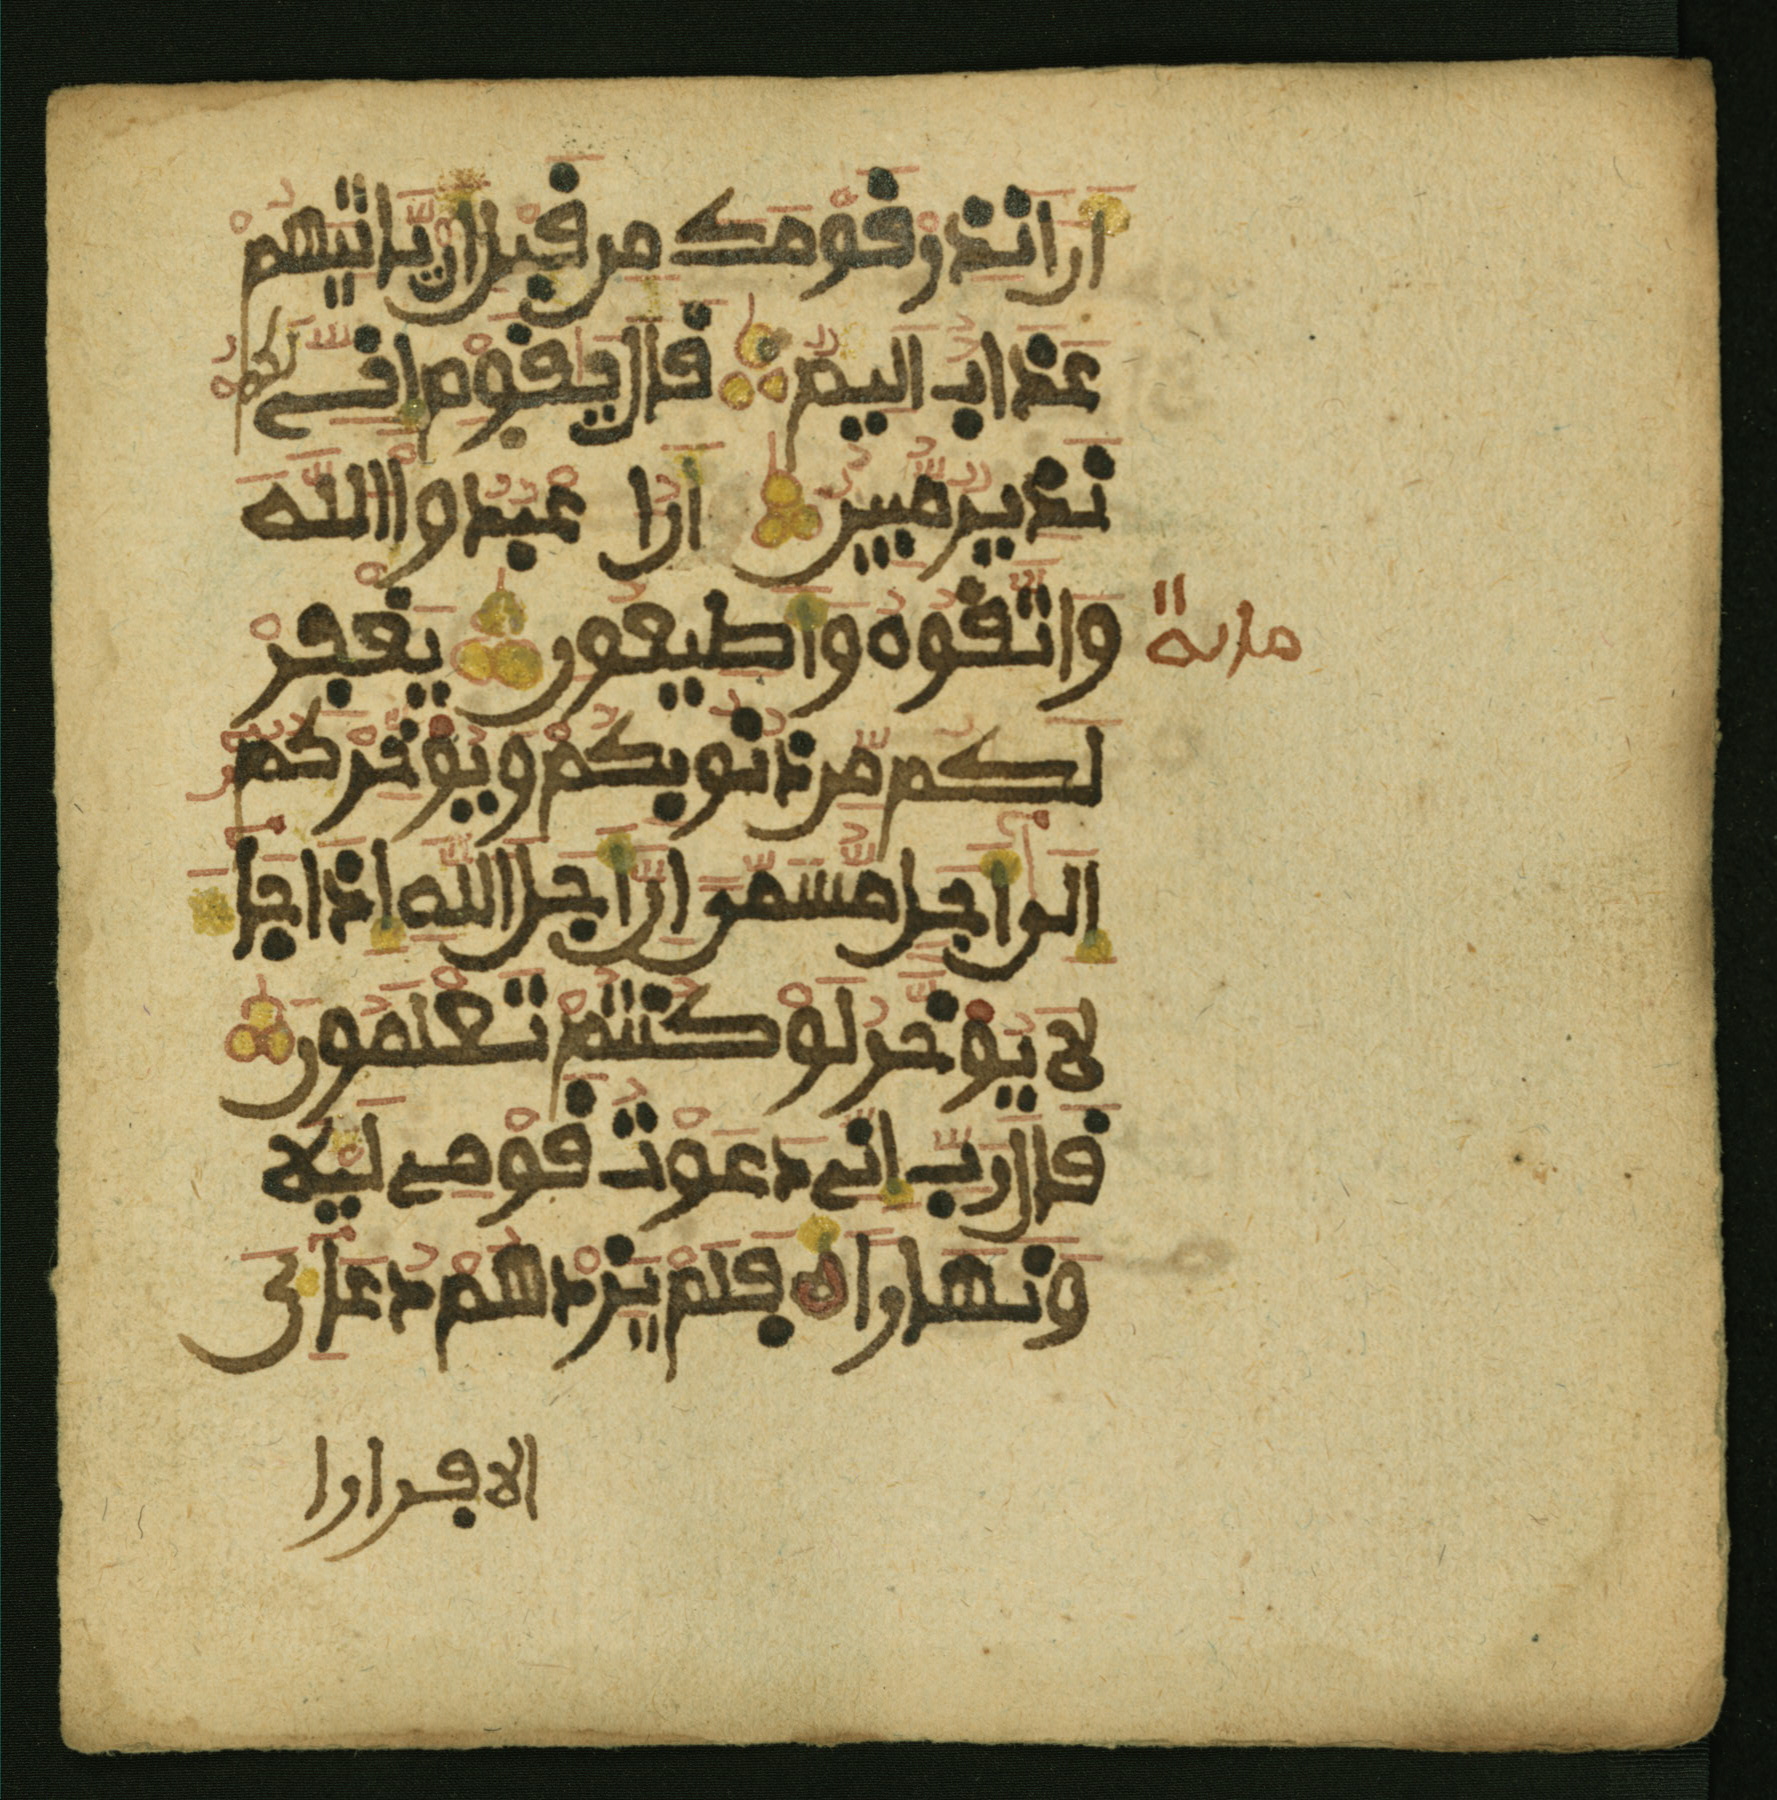 اَنَ اَنذِرْ قَوْمَكَ مِن قَبْلِ أَنْ يَّاتِيَهُمْ
عَذَابٌ اَلِيمٌ قَالَ يَقَوْمِ إِنِّے لَكُمْ
نَذِيرٌ مُّبِينٌ أَنُ اعْبُدُواْ اللَّهَ
وَاتَّقُوهُ وَأَطِيعُونِ يَغْفِرْ
مائة
لَكُم مِّن ذُنُوبِكُمْ وَيُوَخِّرْكُمُ
إِلَى أَجَلٍ مُّسَمًّى إِنَّ أَجَلَ اللَّهِ إِذَا جَآ
لَا يُوَخَّرُ لَوْ كُنتُمْ تَعْلَمُونَ
قَالَ رَبِّ إِنِّے دَعَوْتُ قَوْمِے لَيْلًا
وَنَهَارًا ه فَلَمْ يَزِدْهُمْ دُعَآءِىَ
الا فرارا